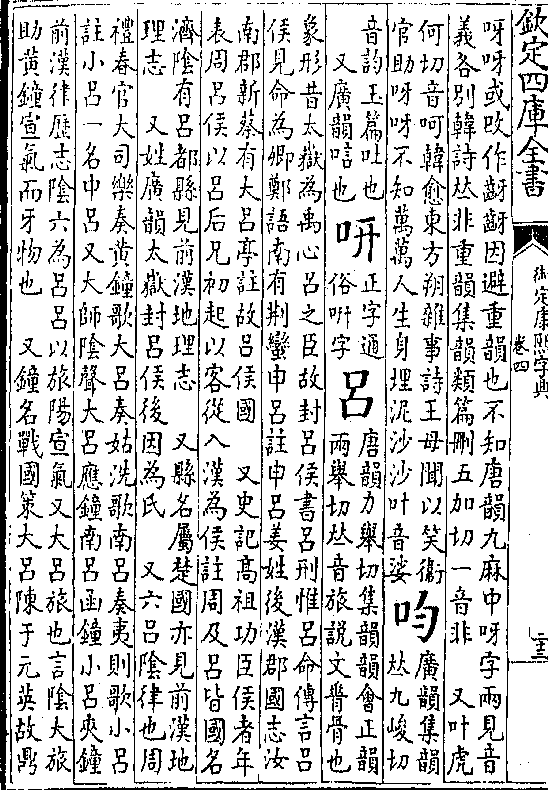 欽定四庫全書
御定康熙字典
卷四
呀呀或改作齖齖因避重韻也不知唐韻九麻中呀字兩見音
義各別韓詩𠀤非重韻集韻類篇刪五加切一音非 又叶虎
何切音呵韓愈東方朔雜事詩王母聞以笑衞
官助呀呀不知萬萬人生身埋泥沙沙叶音娑 呁 廣韻集韻𠀤九峻切
音韵玉篇吐也
又廣韻㖧也 㕩 正字通俗㕩字 呂 唐韻力舉切集韻韻會正韻
兩舉切𠀤音旅說文脊骨也
象形昔太嶽為禹心呂之臣故封呂侯書呂刑惟呂命傳言呂
侯見命為卿鄭語南有荆蠻申呂註申呂姜姓後漢郡國志汝
南郡新蔡有大呂亭註故呂侯國 又史記髙祖功臣侯者年
表周呂侯以呂后兄初起以客從入漢為侯註周及呂皆國名
濟陰有呂都縣見前漢地理志 又縣名屬楚國亦見前漢地
理志 又姓廣韻太嶽封呂侯後因為氏 又六呂陰律也周
禮春官大司樂奏黄鐘歌大呂奏姑洗歌南呂奏夷則歌小呂
註小呂一名中呂又大師陰聲大呂應鐘南呂函鐘小呂夾鐘
前漢律歷志陰六為呂呂以旅陽宣氣又大呂旅也言陰大旅
助黄鐘宣氣而牙物也 又鐘名戰國策大呂陳于元英故鼎